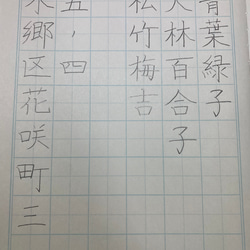 青葉緑子
大林百合子
松竹梅吉
五ノ四
本郷区花咲町三